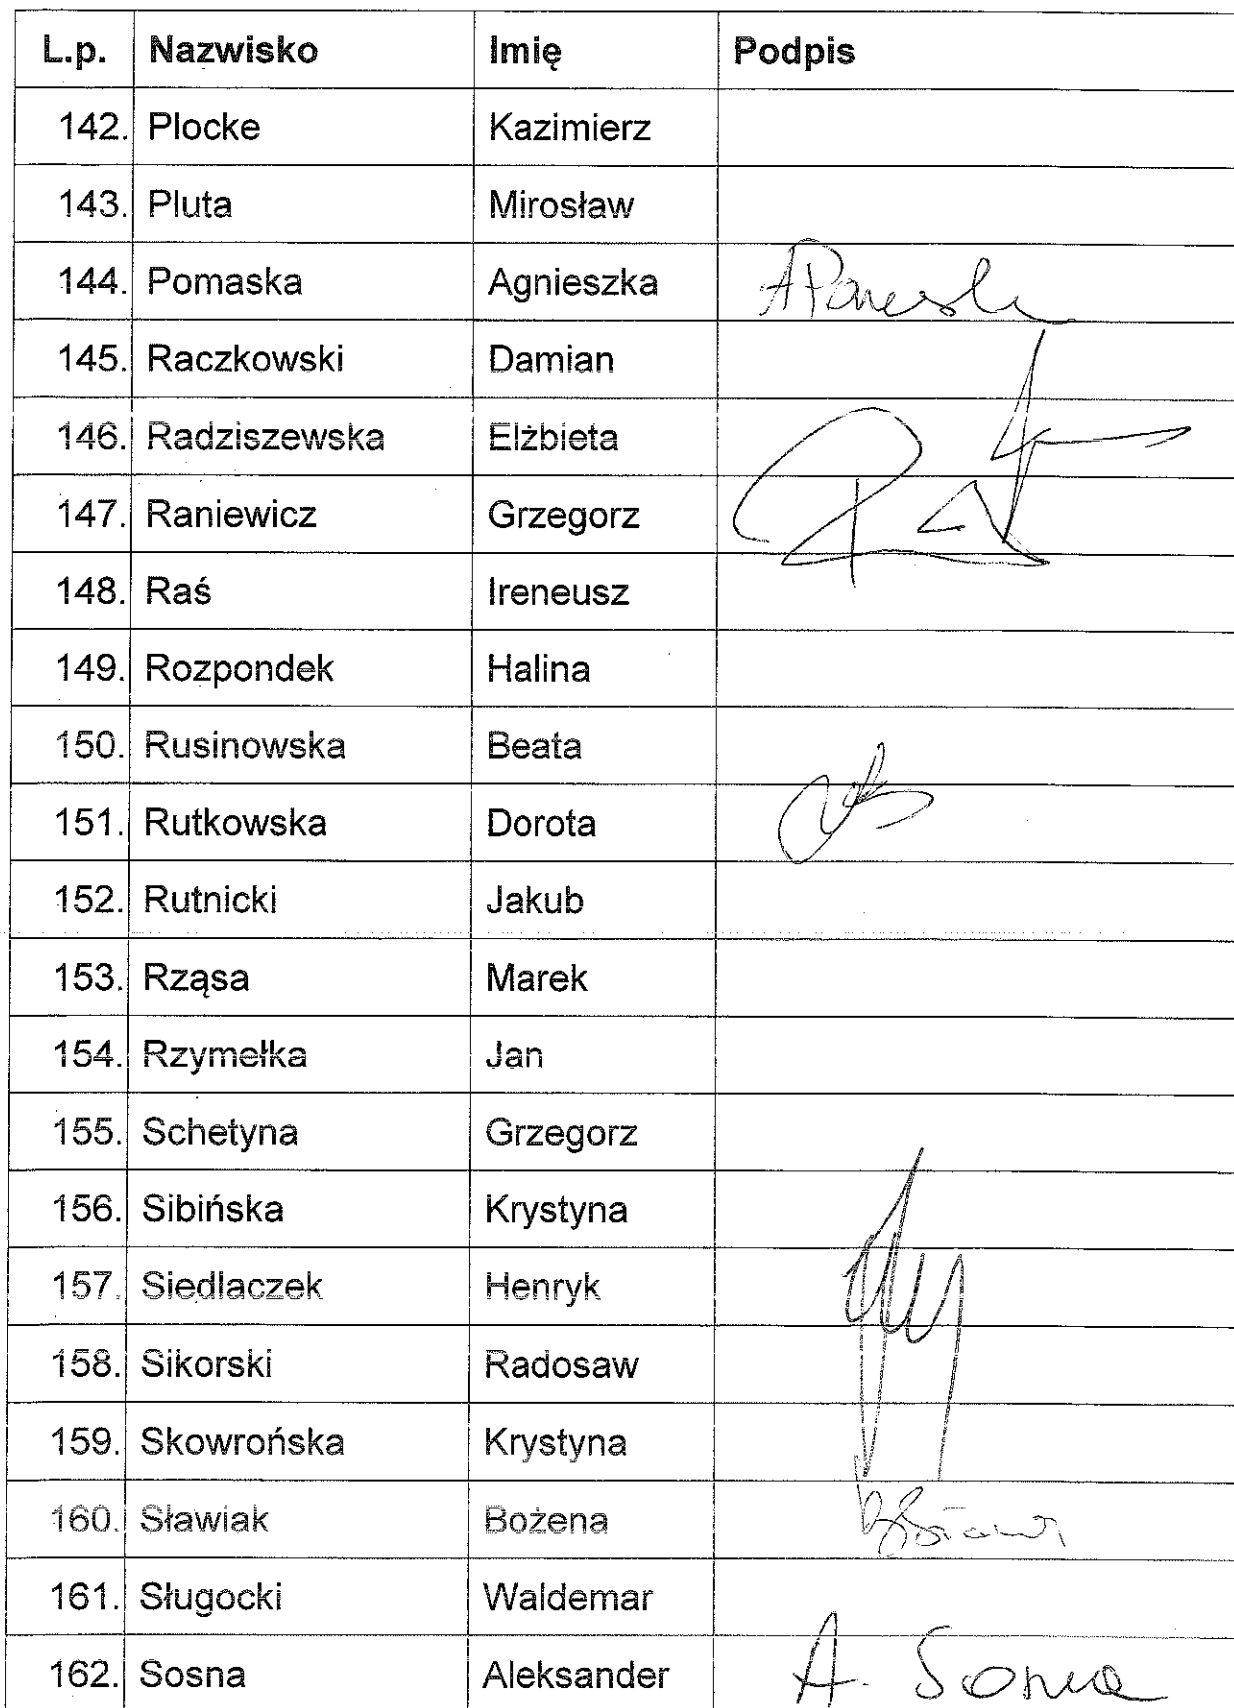 L.p. Nazwisko Imię Podpis
142. Plocke Kazimierz
143. Pluta Mirosław
144. Pomaska Agnieszka
145. Raczkowski Damian
146. Radziszewska Elżbieta
147. Raniewicz Grzegorz
148. Raś Ireneusz
149. Rozpondek Halina
150. Rusinowska Beata
151. Rutkowska Dorota
152. Rutnicki Jakub
153. Rząsa Marek
154. Rzymełka Jan
155. Schetyna Grzegorz
156. Sibińska Krystyna
157. Siedlaczek Henryk
158. Sikorski Radosaw
159. Skowrońska Krystyna
160. Sławiak Bożena
161. Sługocki Waldemar
162. Sosna Aleksander A. Sosna